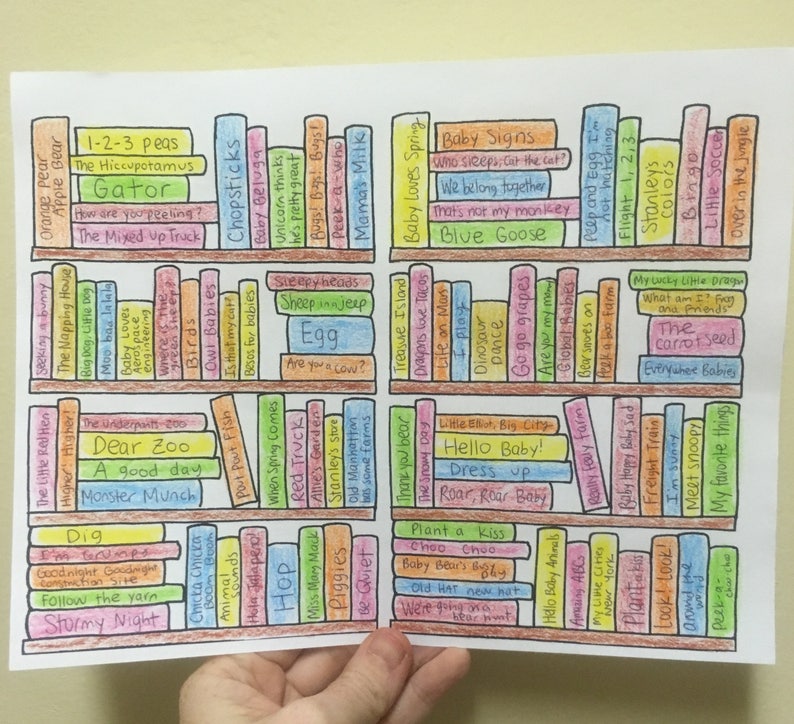 Orange Pear
Apple Bear
1-2-3 peas
The Hiccupotamus
Gator
How are you peeling?
The Mixed up Truck
Chopsticks
Baby Beluga
Unicorn thinks
he's pretty great
Bugs! Bugs! Bugs!
Peek-a-who
Mama's Milk
Baby Loves Spring
Baby Signs
Who sleeps, Cat the Cat?
We belong together
That's not my monkey
Blue Goose
Peep and Egg I'm
not hatching
Flight 1, 2, 3
Stanley's
Colors
Bingo
Little Soccer
Over in the jungle
Seeking a bunny
The Napping House
Big Dog, Little Dog
Moo baa lalala
Baby Loves
Aerospace
engineering
Where is the
green sheep?
Birds
Owl Babies
Is that my cat?
Besos for babies
Sleepyheads
Sheep in a jeep
Egg
Are you a cow?
Treasure Island
Dragons Love Tacos
Life on Mars
I play
Dinosaur
Dance
Go go grapes
Are you my mommy
Global Babies
Bear snores on
Peek a boo farm
My Lucky Little Dragon
What am I? Frog
and Friends
The
carrot seed
Everywhere Babies
The Little Red Hen
Higher! Higher!
The underpants zoo
Dear Zoo
A good day
Monster Munch
Pout Pout Fish
When Spring Comes
Red Truck
Alfie's Garden
Stanley's store
Old Manhattan
has some farms
Thank you bear
The Snowy Day
Little Elliot, Big City
Hello Baby!
Dress up
Roar, Roar Baby
Really Feely Farm
Baby happy Baby sad
Freight Train
I'm sunny
Meet snoopy
My favorite things
Dig
I'm Grumpy
Goodnight Goodnight
Construction Site
Follow the yarn
Stormy Night
Chicka Chicka
Boom Boom
Animal
Sounds
Hola Jalapeno!
Hop
Miss Mary Mack
Piggies
Be Quiet
Plant a kiss
Choo Choo
Baby Bear's Busy
Day
Old HAT new hat
We're going on a
bear hunt
Hello Baby Animals
Amazing ABCs
My Little Cities
New York
Plant a kiss
Look! Look!
around the
world
Peek-a-
choo choo